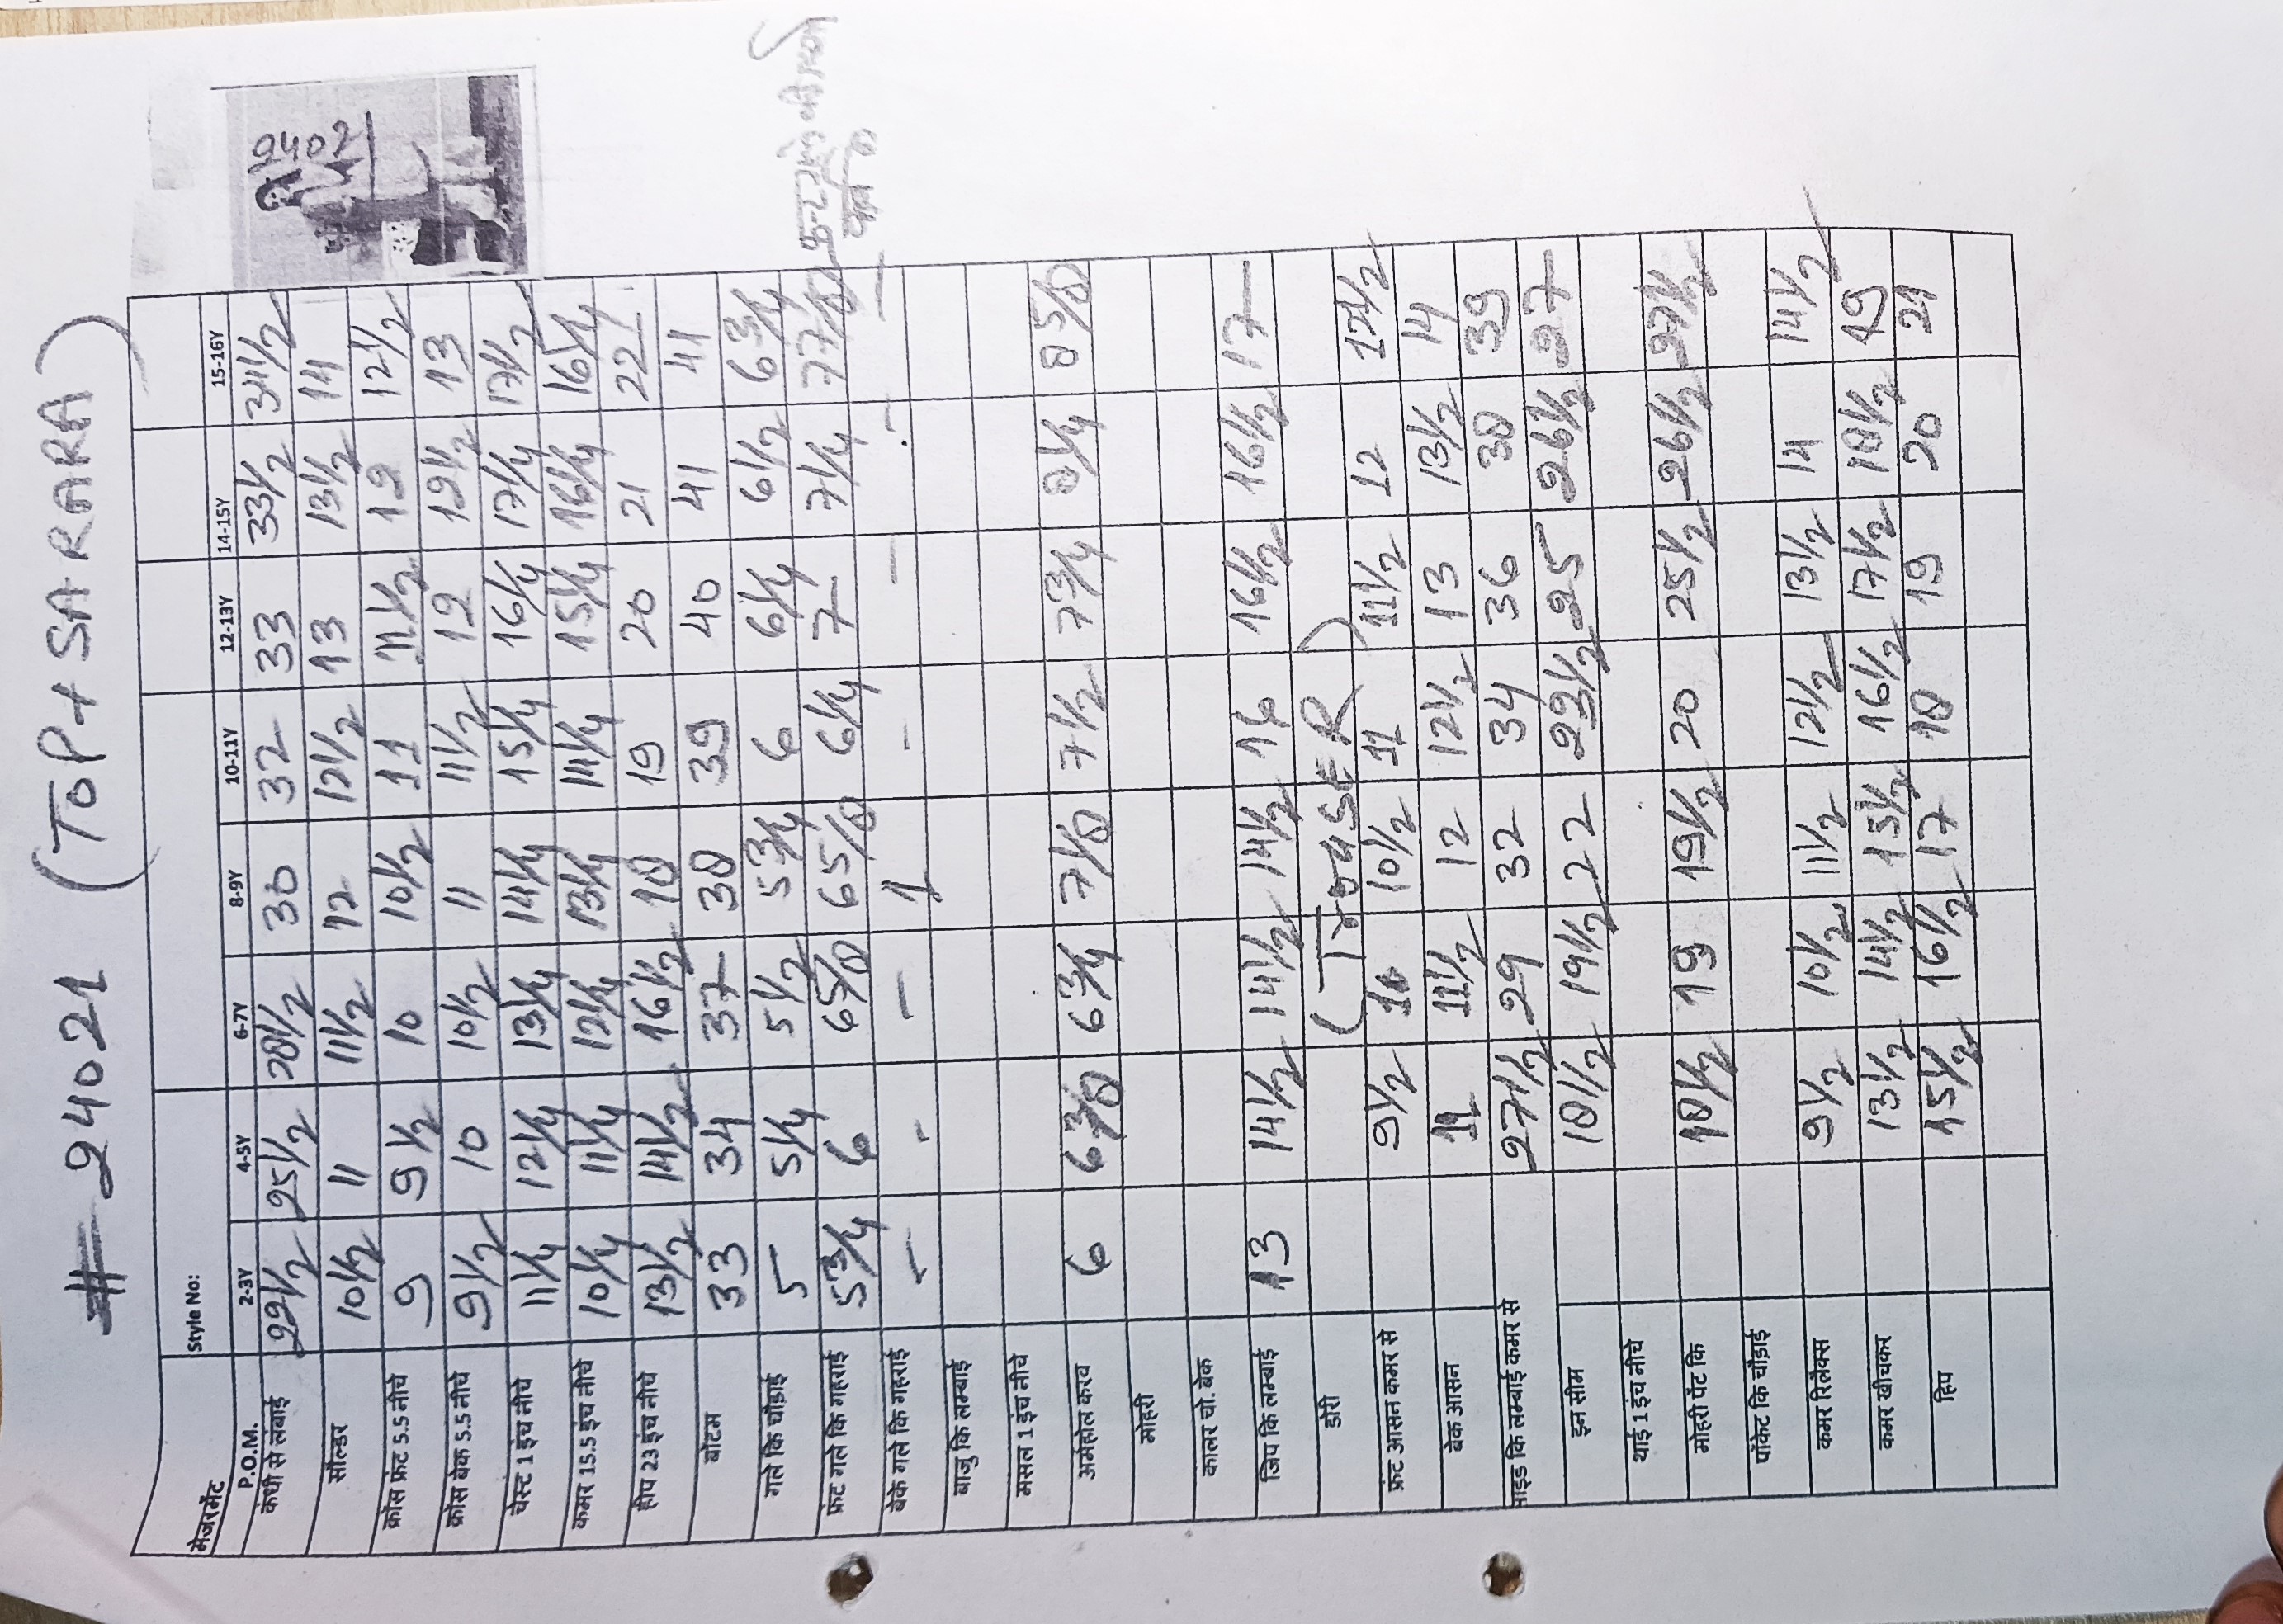 # 24021 (TOP + SARARA)
A 2402
Style No:
मेजरमेंट
P.O.M. 2-3Y 4-5Y 6-7Y 8-9Y 10-11Y 12-13Y 14-15Y 15-16Y
कंधी से लंबाई 22 1/2 25 1/2 28 1/2 30 32 33 33 1/2 34 1/2
सौल्डर 10 1/2 11 11 1/2 12 12 1/2 13 13 1/2 14
क्रोस फ्रंट 5.5 नीचे 9 9 1/2 10 10 1/2 11 11 1/2 12 12 1/2
क्रोस बेक 5.5 नीचे 9 1/2 10 10 1/2 11 11 1/2 12 12 1/2 13
चेस्ट 1 इंच नीचे 11 1/4 12 1/4 13 1/4 14 1/4 15 1/4 16 1/4 17 1/4 17 1/2
कमर 15.5 इंच नीचे 10 1/4 11 1/4 12 1/4 13 1/4 14 1/4 15 1/4 16 1/4 16 1/4
हीप 23 इंच नीचे 13 1/2 14 1/2 16 1/2 18 19 20 21 22
बोटम 33 34 37 38 39 40 41 41
गले कि चौड़ाई 5 5 1/4 5 1/2 5 3/4 6 6 1/4 6 1/2 6 3/4
फ्रंट गले कि गहराई 5 3/4 6 6 5/8 6 5/8 6 1/4 7 7 1/4 7 7/8
बेके गले कि गहराई - - - 1 - - - -
बाजु कि लम्बाई
मसल 1 इंच नीचे
अर्महोल करव 6 6 3/8 6 3/4 7 1/8 7 1/2 7 3/4 8 1/4 8 5/8
मोहरी
कालर चो. बेक
जिप कि लम्बाई 13 14 1/2 14 1/2 14 1/2 16 16 1/2 16 1/2 17
डोरी (TrouSER)
फ्रंट आसन कमर से 9 1/2 10 10 1/2 11 11 1/2 12 12 1/2
बेक आसन 11 11 1/2 12 12 1/2 13 13 1/2 14
साइड कि लम्बाई कमर से 27 1/2 29 32 34 36 38 39
इन सीम 18 1/2 19 1/2 22 23 1/2 25 26 1/2 27
थाई 1 इंच नीचे
मोहरी पेंट कि 18 1/2 19 19 1/2 20 25 1/2 26 1/2 27 1/2
पॉकेट कि चौड़ाई
कमर रिलैक्स 9 1/2 10 1/2 11 1/2 12 1/2 13 1/2 14 14 1/2
कमर खीचकर 13 1/2 14 1/2 15 1/2 16 1/2 17 1/2 18 1/2 19
हिप 15 1/2 16 1/2 17 18 19 20 21